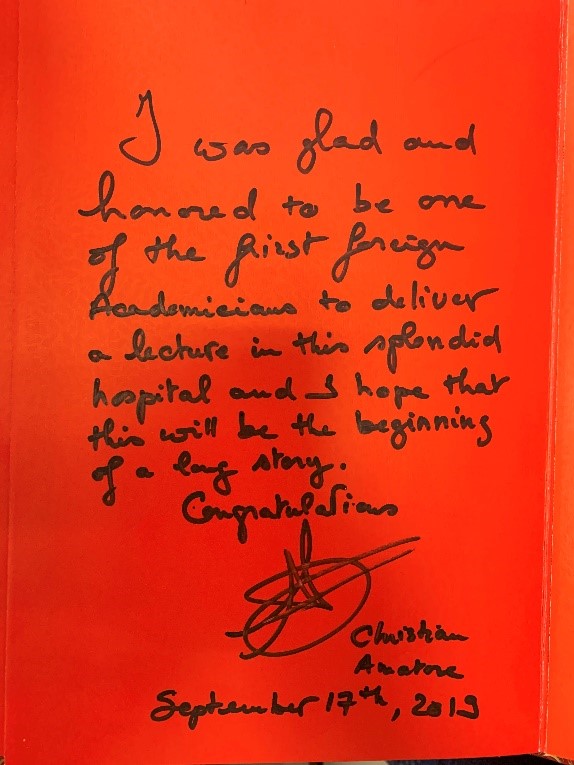 I was glad and
honored to be one
of the first foreign
Academicians to deliver
a lecture in this splendid
hospital and I hope that
this will be the beginning
of a long story.
Congratulations
Christian
Amatore
September 17th, 2019